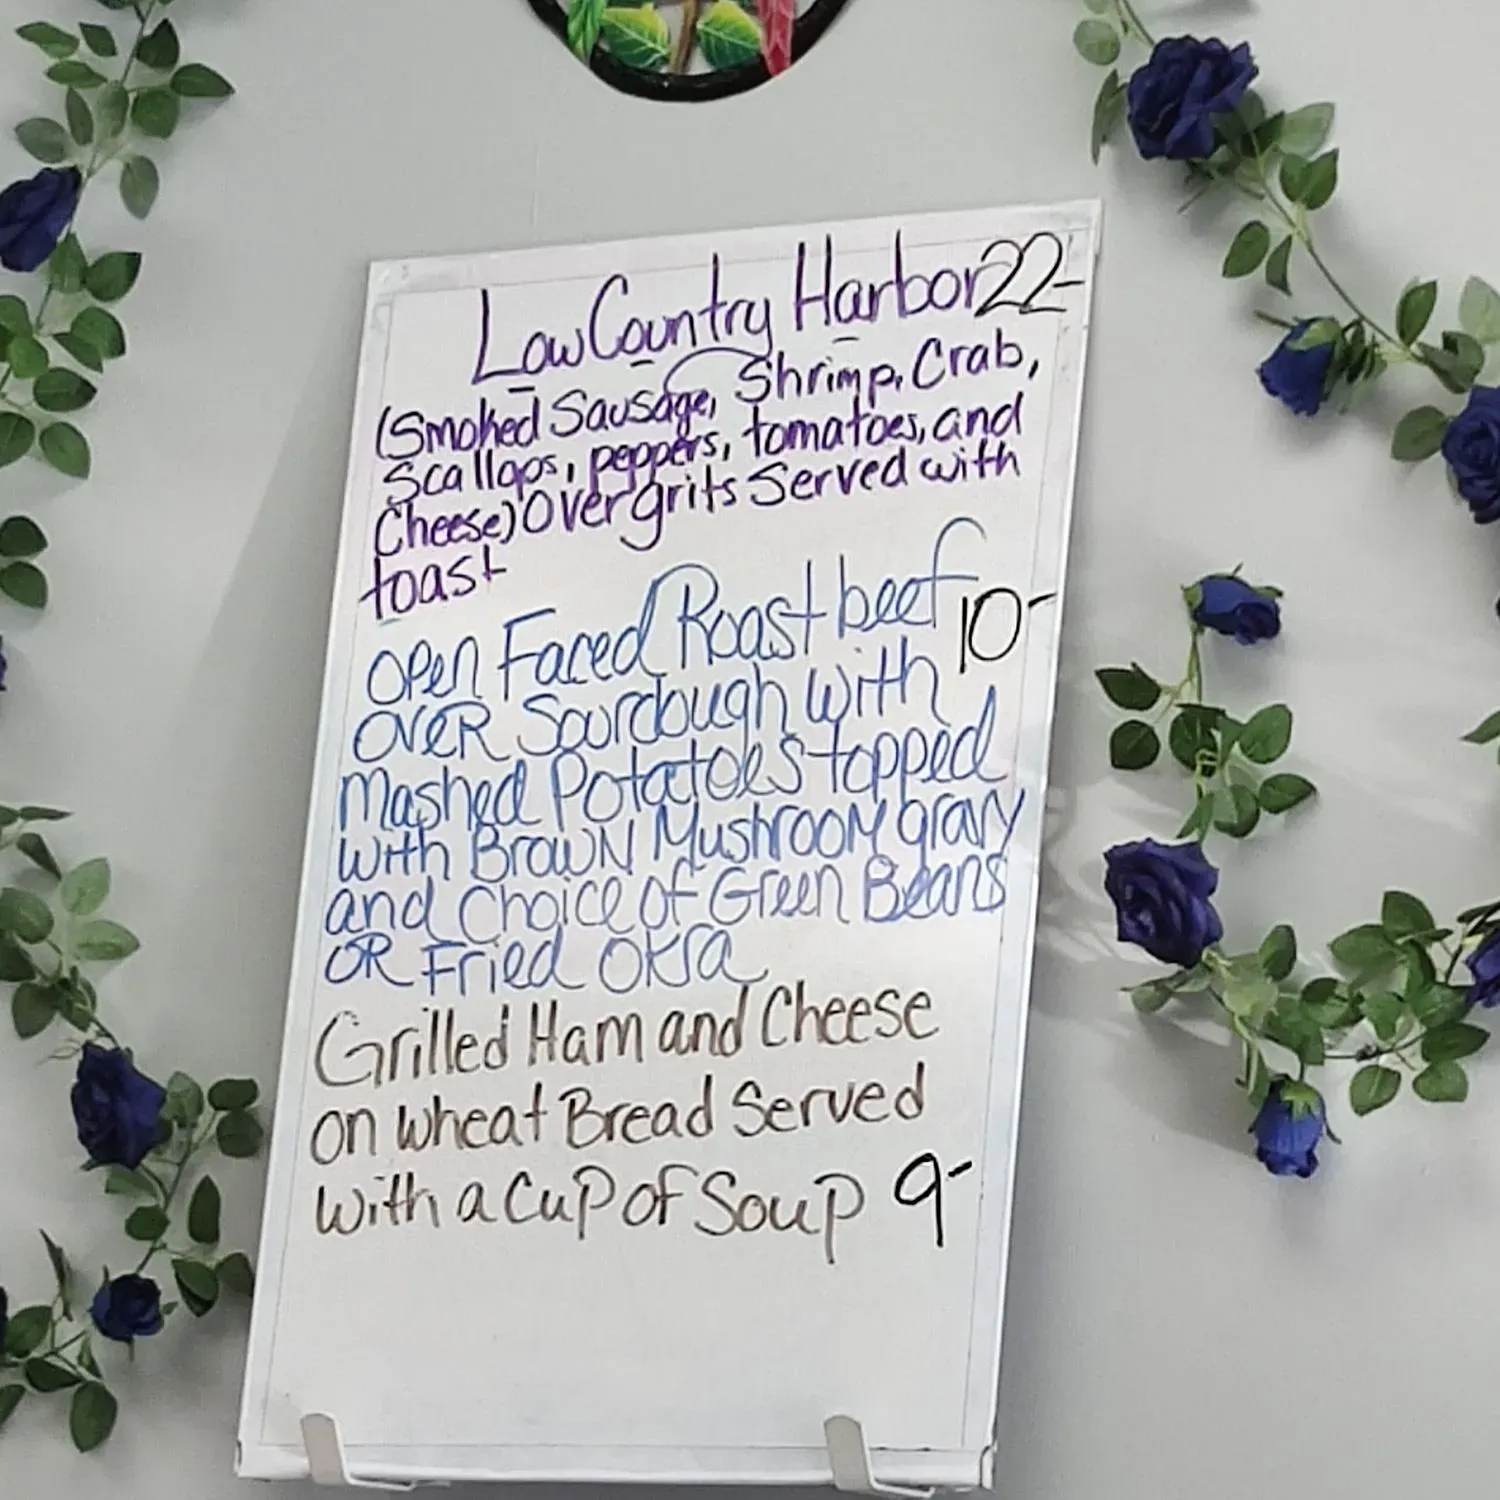 Low Country Harbor 22-
(Smoked Sausage, Shrimp, Crab,
Scallops, peppers, tomatoes, and
Cheese) Over grits Served with
toast
OPEN Faced Roast beef 10-
OVER Sourdough with
Mashed Potatoes topped
with BROWN Mushroom gravy
and Choice of Green Beans
OR Fried OKra
Grilled Ham and Cheese
on wheat Bread Served
with a Cup of Soup 9-